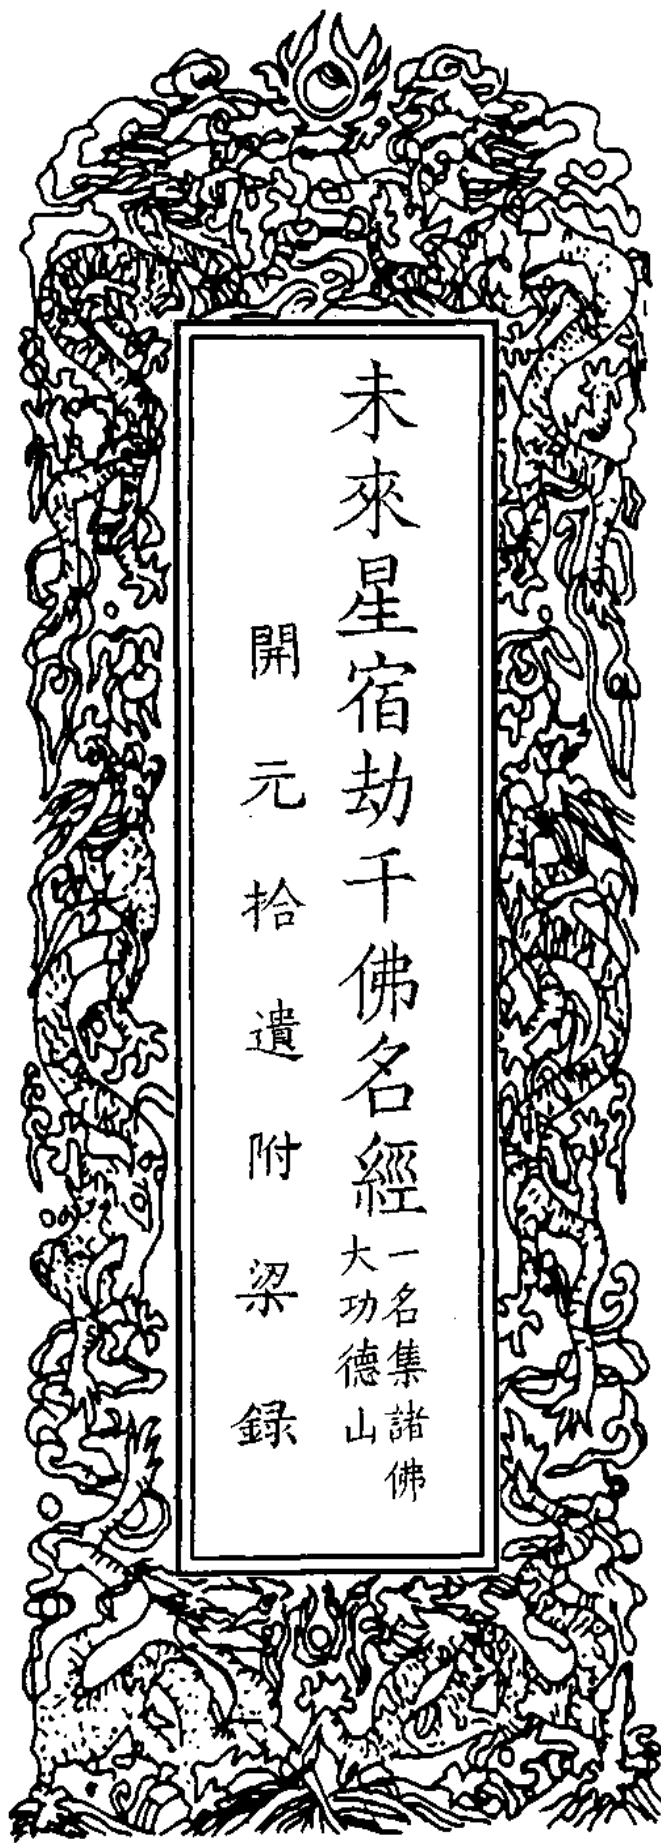 未來星宿劫千佛名經
一名集諸佛
大功德山
開元拾遺附梁録